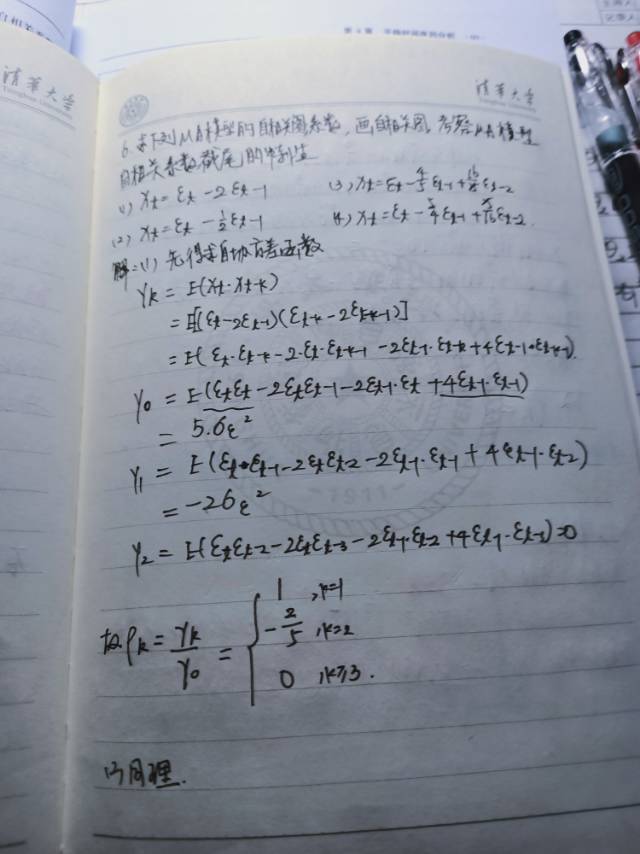 清華大学
Tsinghua University
清華大学
Tsinghua University
6. 求下列MA模型的自相关系数，画自相关图，考察MA模型
自相关系数截尾的
(1) Xt = εt - 2εt-1
(3) Xt = εt - 4/5 εt-1 + 16/25 εt-2
(2) Xt = εt - 1/2 εt-1
(4) Xt = εt - 5/4 εt-1 + εt-2.
解：(1) 先得求自协方差函数
γk = E(Xt·Xt-k)
= E[(εt-2εt-1)(εt-k-2εt-k-1)]
= E(εt·εt-k-2·εt·εt-k-1 -2εt-1·εt-k+4εt-1·εt-k-1).
γ0 = E(εtεt-2εtεt-1-2εt-1·εt+4εt-1·εt-1)
= 5·σε²
γ1 = E(εt·εt-1-2εtεt-2-2εt-1·εt-1+4εt-1·εt-2)
= -2σε²
-1911-
γ2 = E(εtεt-2-2εtεt-3-2εt-1·εt-2+4εt-1·εt-3)=0
故ρk = γk/γ0 = { 1 , k=1
-2/5 , k=2
0 , k≥3.
(2) 同理.